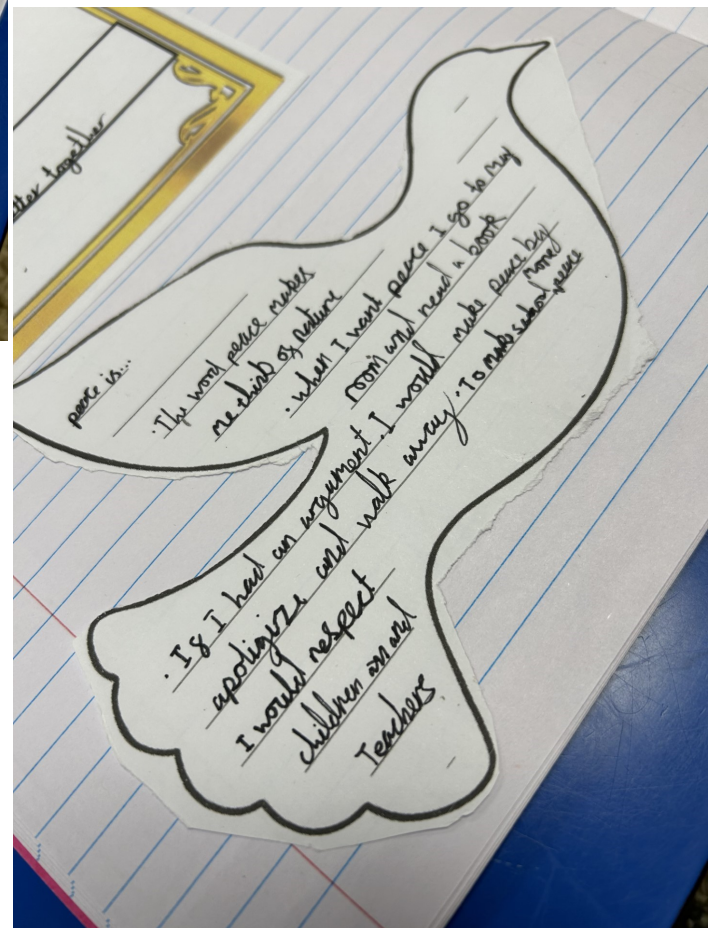 etter together
peace is...
·The word peace makes
me think of nature
·When I want peace I go to my
room and read a book
·If I had an argument. I would make peace by
apoligize and walk away. To make school peace
more
I would respect
children and
Teachers